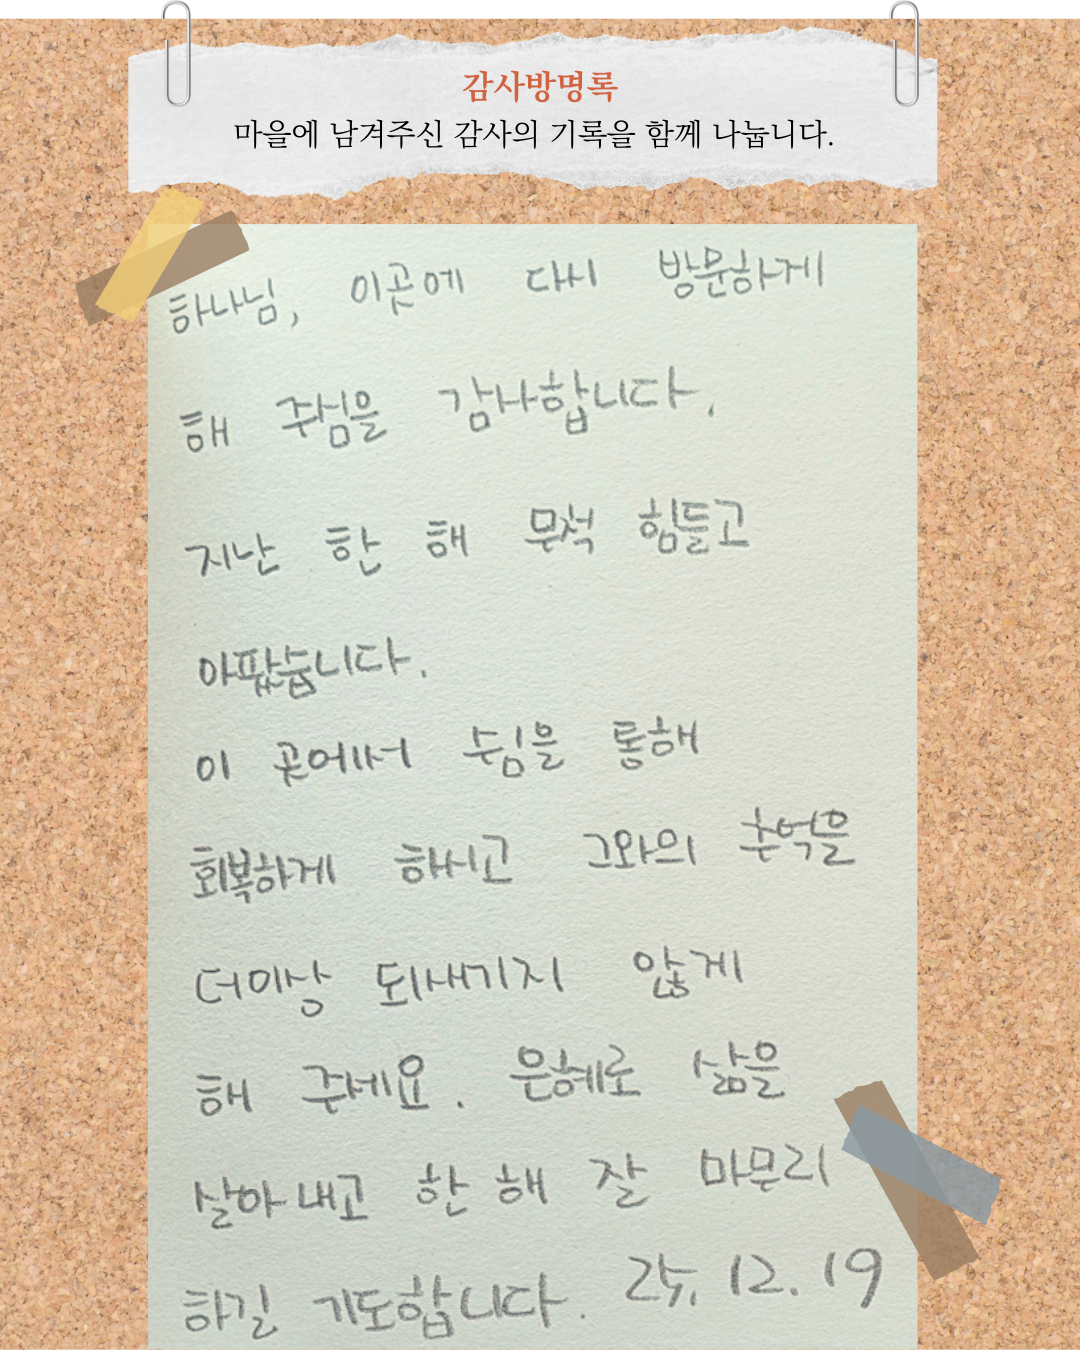 감사방명록
마을에 남겨주신 감사의 기록을 함께 나눕니다.
하나님, 이곳에 다시 방문하게
해 주심을 감사합니다.
지난 한 해 무척 힘들고
아팠습니다.
이 곳에서 쉼을 통해
회복하게 하시고 그와의 추억을
더이상 되새기지 않게
해 주세요. 은혜로 삶을
살아내고 한 해 잘 마무리
하길 기도합니다. 25. 12. 19